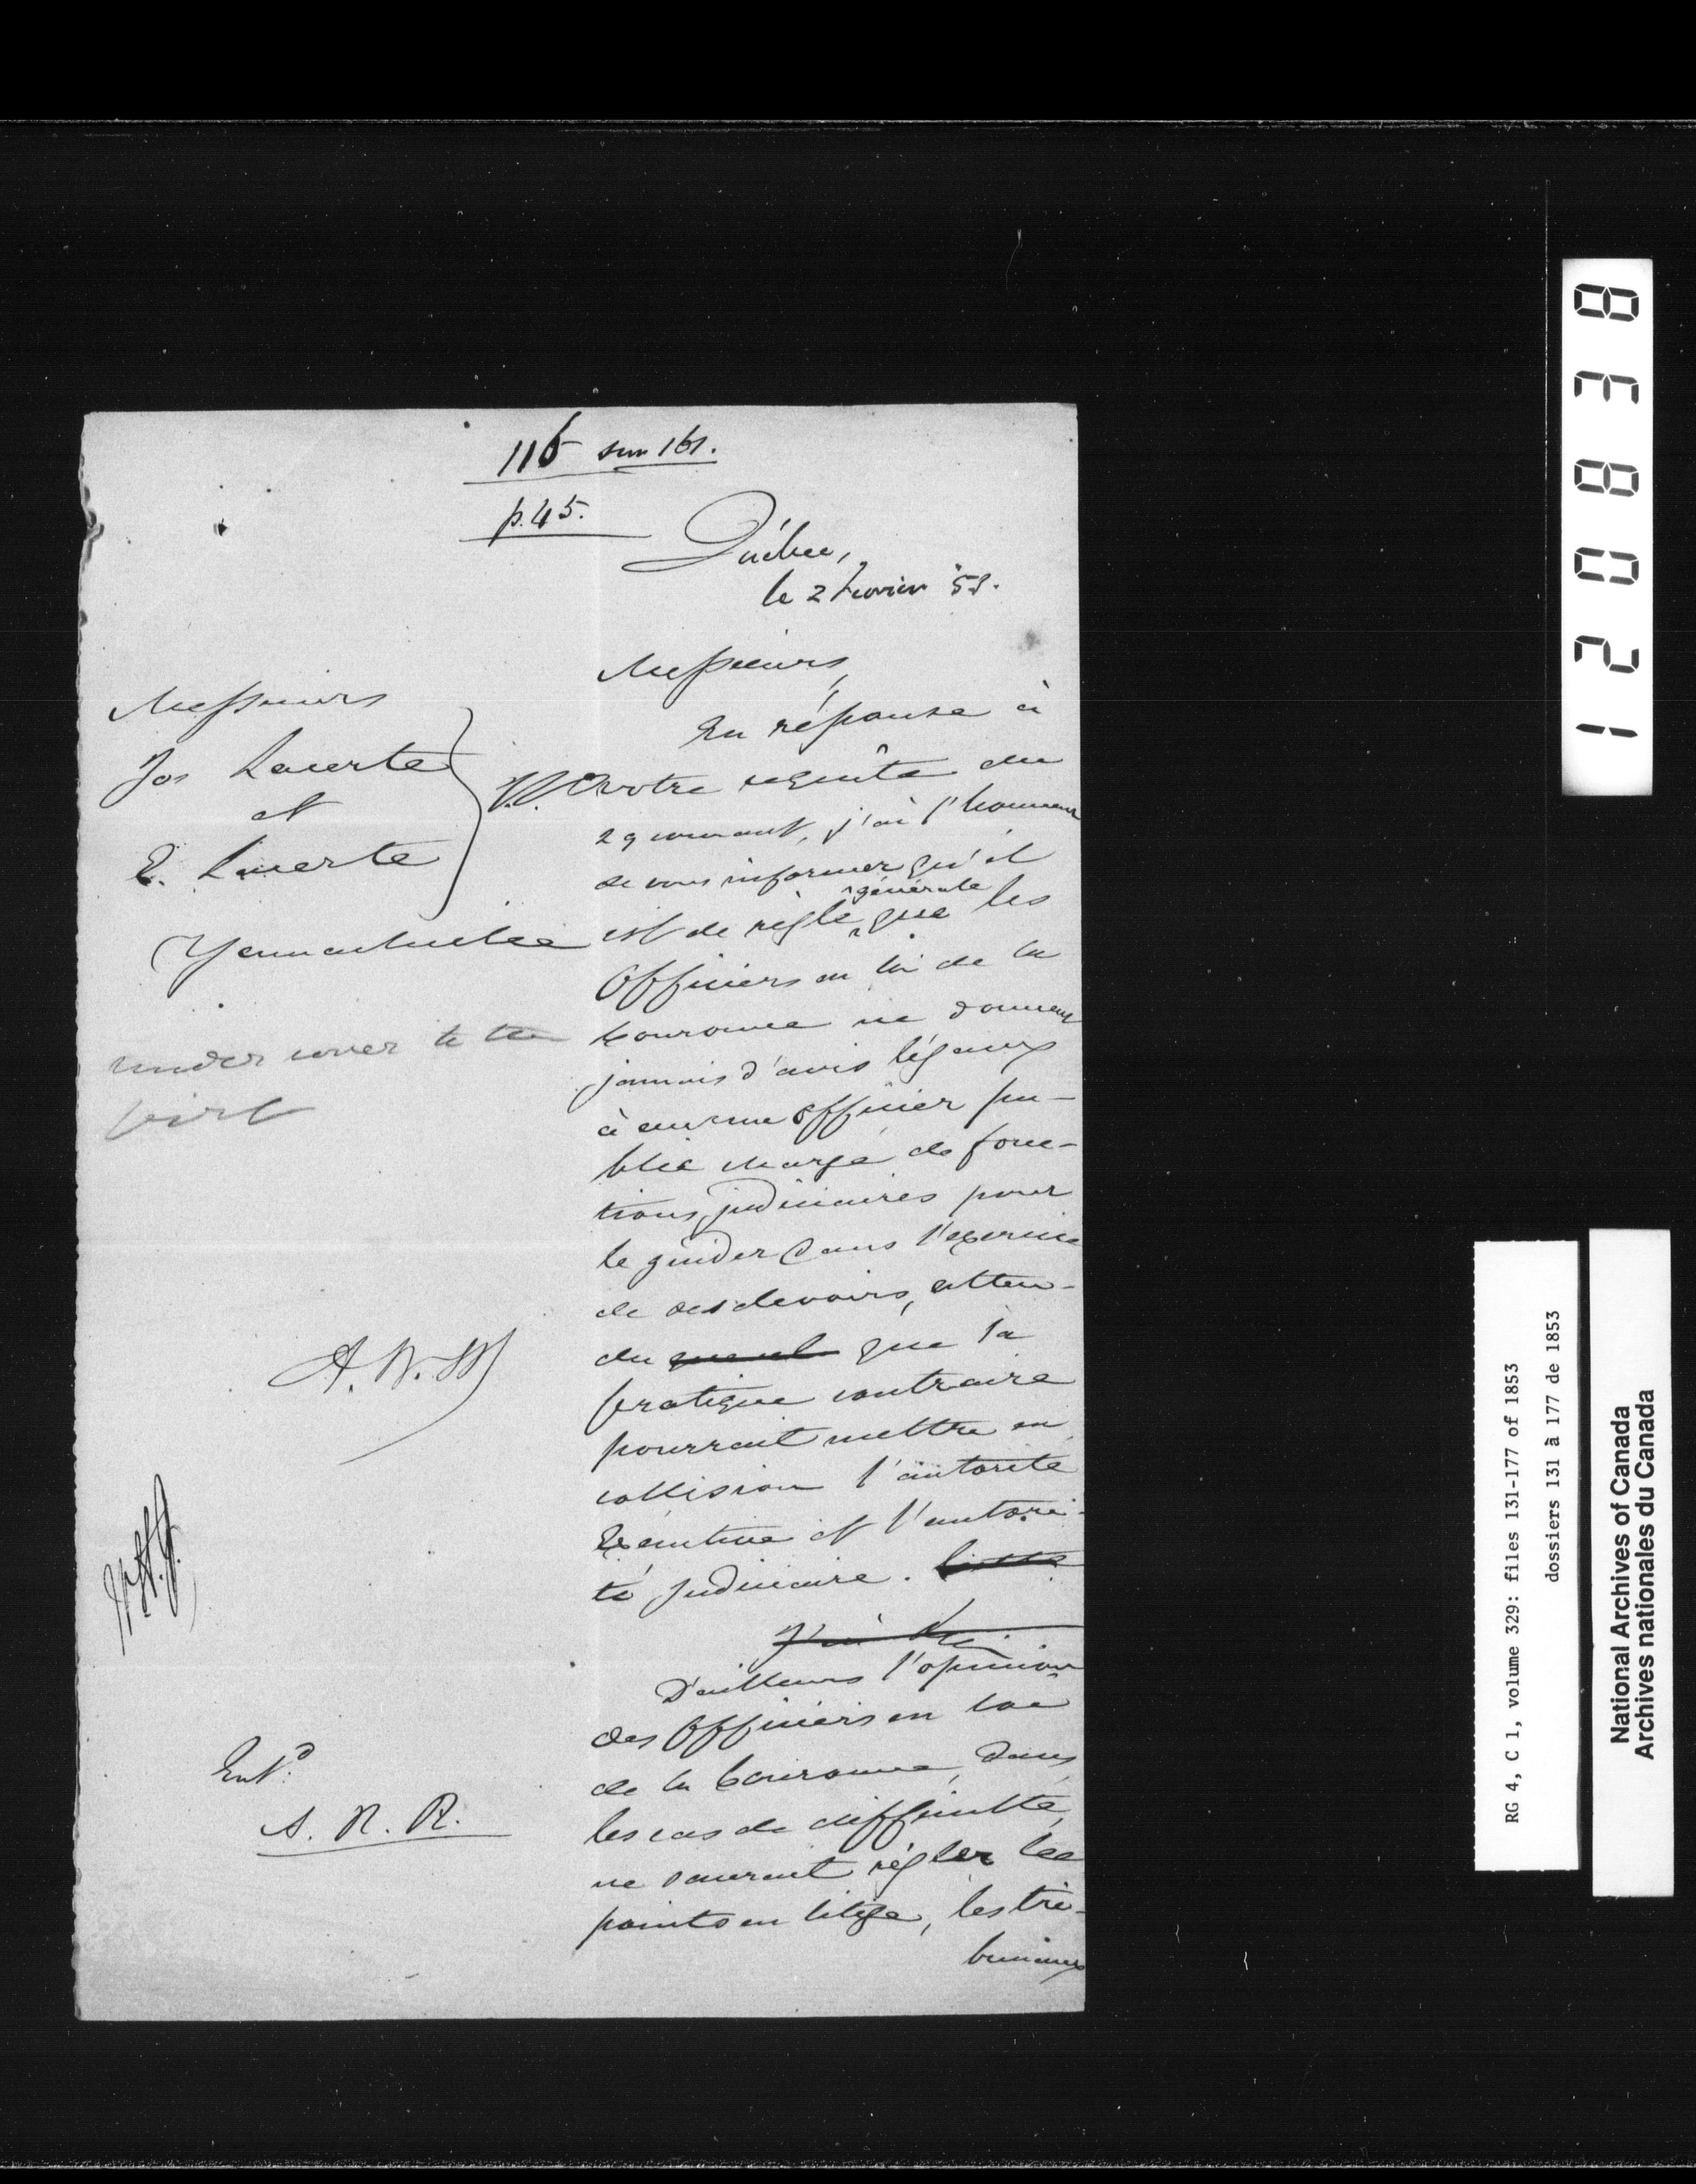 116 sur 161.
p. 45.
Québec,
le 2 Fevrier '53.
Messieurs
Jos Lacerte
et
E. Lacerte
Yamachiche
under cover to the
first
A. N. M
Entd.
A. R. R.
Messieurs,
En réponse à
votre requête du
29 courant, j'ai l'honneur
de vous informer qu'il
est de règle générale que les
Officiers en loi de la
Couronne ne donnent
jamais d'avis légaux
à aucune officier pu-
blic chargé de fonc-
tions judiciaires pour
le guider dans l'exercice
de ses devoirs, atten-
du que la
pratique contraire
pourrait mettre en
collision l'autorité
Exécutive et l'autori-
té judiciaire.
D'ailleurs l'opinion
des Officiers en loi
de la Couronne, dans
les cas de difficulté,
ne saurait régler les
points en litige, les tri-
bunaux
1 2 0 8 3 8
RG 4, C 1, volume 329: files 131-177 of 1853
dossiers 131 à 177 de 1853
National Archives of Canada
Archives nationales du Canada